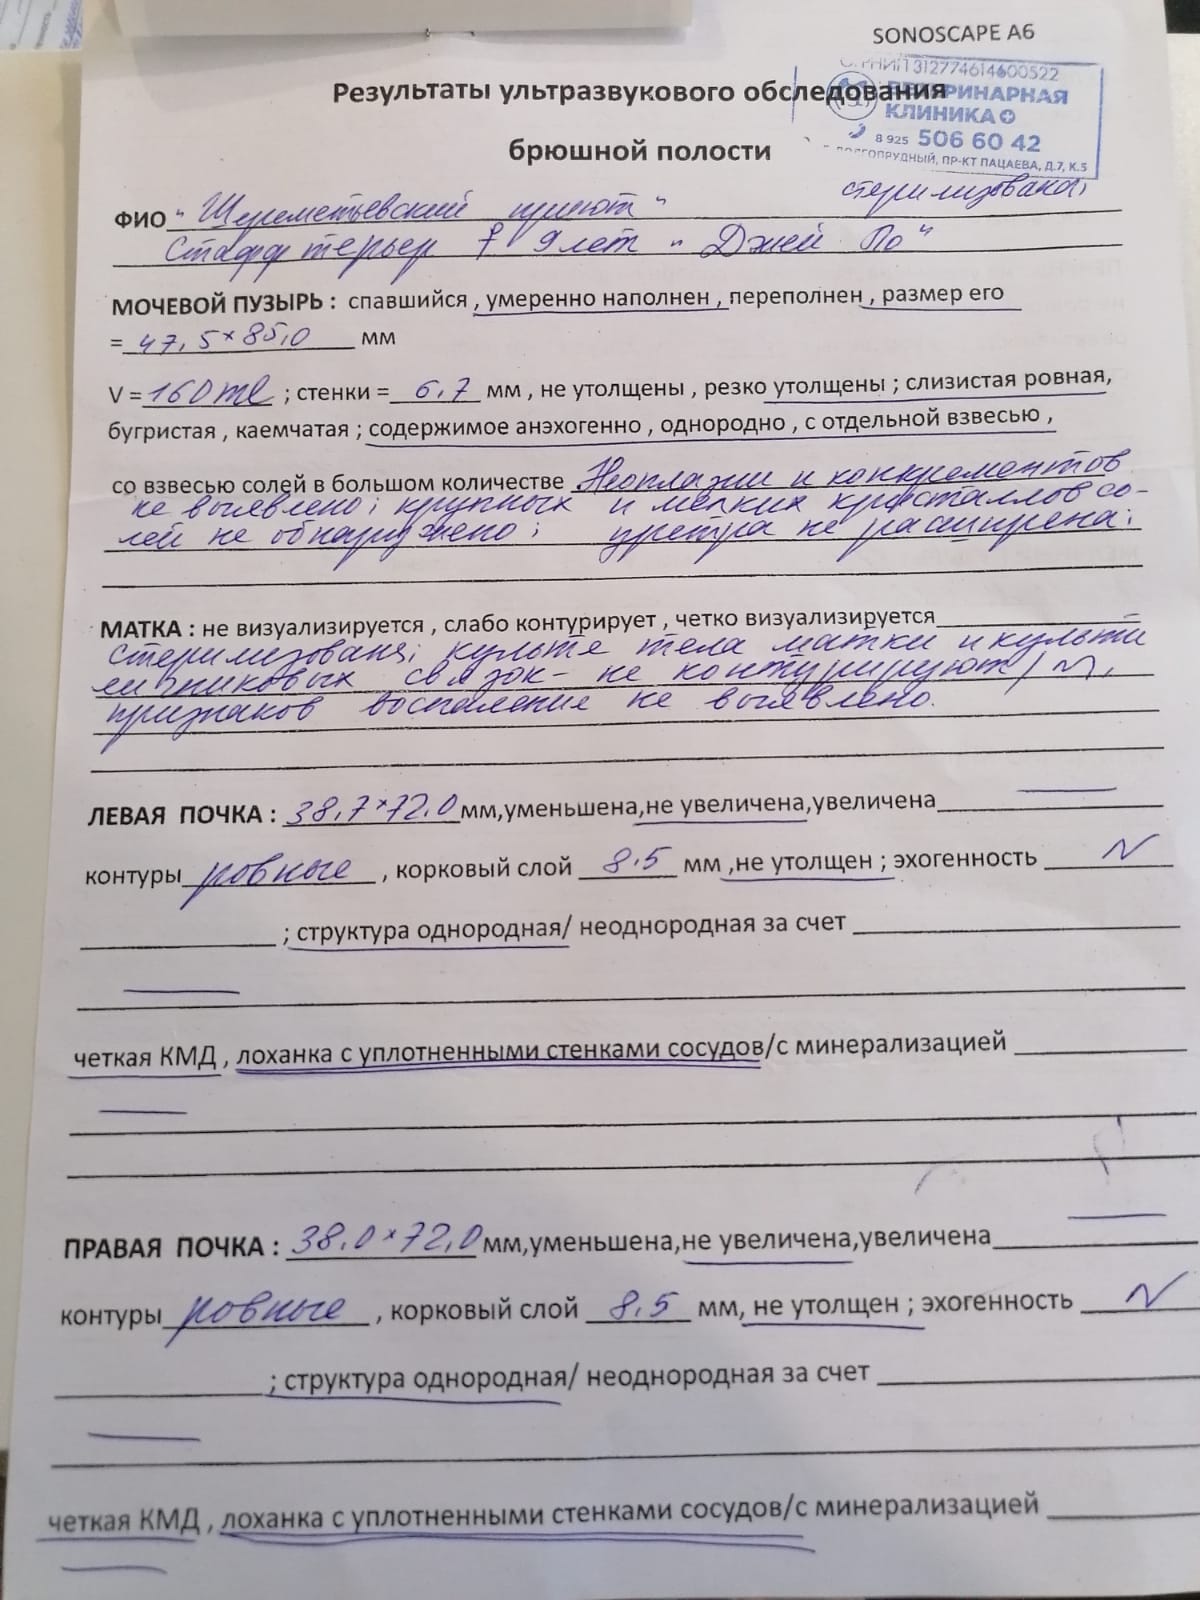 SONOSCAPE A6
312774614600522
ВЕТЕРИНАРНАЯ
КЛИНИКА
8 925 506 60 42
ДОЛГОПРУДНЫЙ, ПР-КТ ПАЦАЕВА, Д.7, К.5
Результаты ультразвукового обследования
брюшной полости
стерилизована,
ФИО "Шереметьевский приют"
Стафф терьер ♀ 9 лет "Джей Ло"
МОЧЕВОЙ ПУЗЫРЬ : спавшийся , умеренно наполнен , переполнен , размер его
= 47,5×85,0 мм
V = 160 ml ; стенки = 6,7 мм , не утолщены , резко утолщены ; слизистая ровная,
бугристая , каемчатая ; содержимое анэхогенно , однородно , с отдельной взвесью ,
со взвесью солей в большом количестве Неоплазии и конкрементов
не выявлено; крупных и мелких кристаллов со-
лей не обнаружено; уретра не расширена;
МАТКА : не визуализируется , слабо контурирует , четко визуализируется
стерилизована; культе тела матки и культи
яичниковых связок - не контурируют / N,
признаков воспаление не выявлено.
ЛЕВАЯ ПОЧКА : 38,7×72,0 мм,уменьшена,не увеличена,увеличена
контуры ровные , корковый слой 8,5 мм ,не утолщен ; эхогенность N
; структура однородная/ неоднородная за счет
четкая КМД , лоханка с уплотненными стенками сосудов/с минерализацией
ПРАВАЯ ПОЧКА : 38,0×72,0 мм,уменьшена,не увеличена,увеличена
контуры ровные , корковый слой 8,5 мм, не утолщен ; эхогенность N
; структура однородная/ неоднородная за счет
четкая КМД , лоханка с уплотненными стенками сосудов/с минерализацией